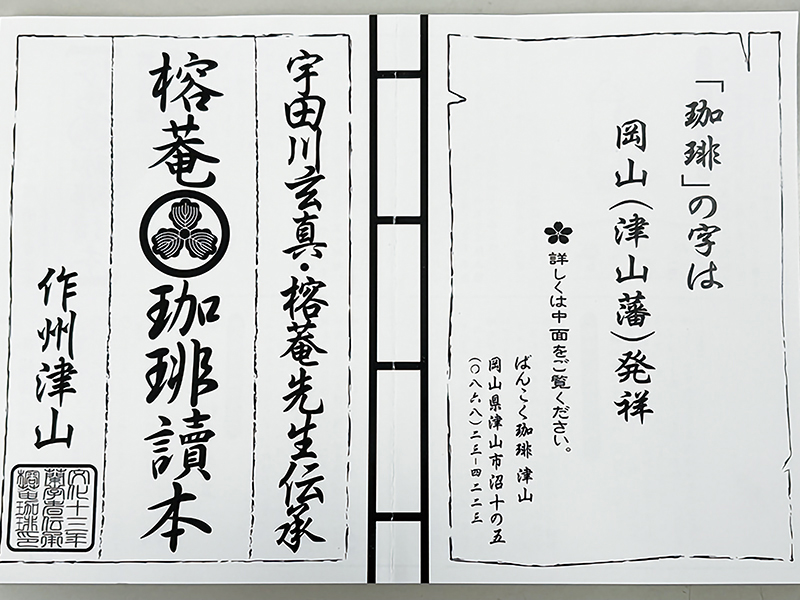 「珈琲」の字は
岡山(津山藩)発祥
詳しくは中面をご覧ください。
ばんこく珈琲 津山
岡山県津山市沼十の五
(〇八六八)二三-四二二三
宇田川玄真・榕菴先生伝承
榕菴珈琲讀本
作州津山
文化十三年
蘭学者伝承
榕菴珈琲印